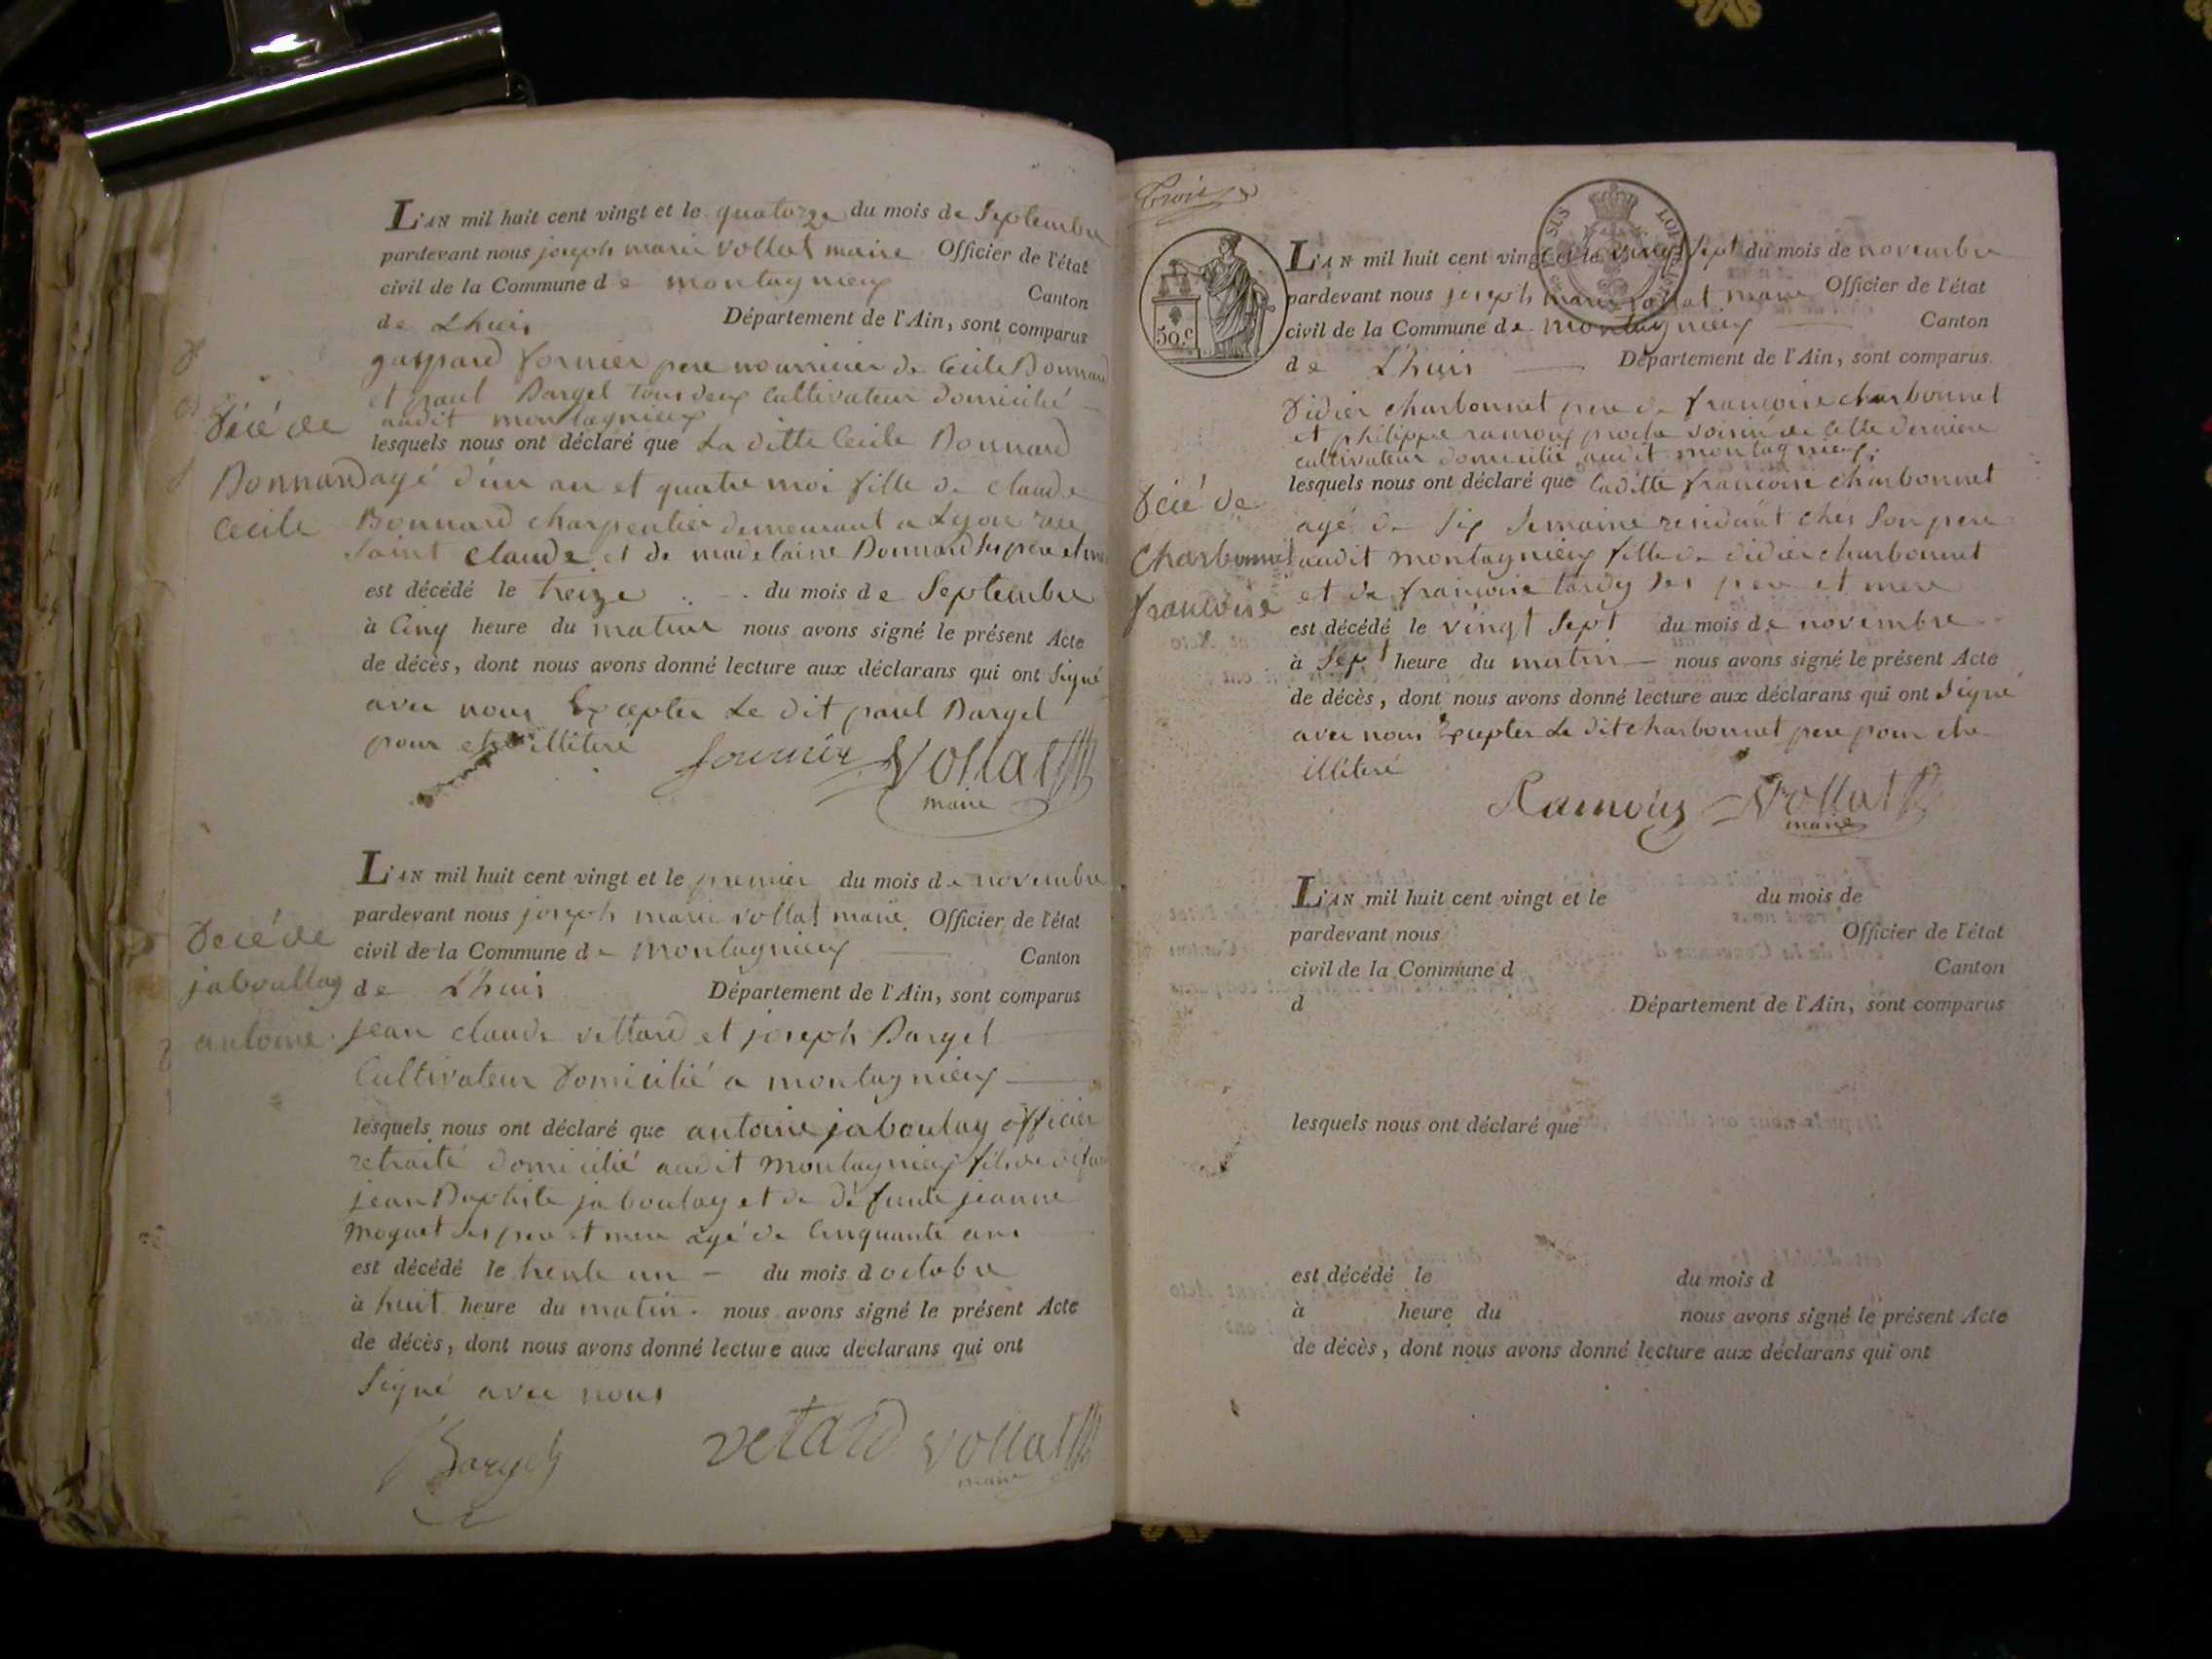 L'AN mil huit cent vingt et le quatorze du mois de Septembre
pardevant nous joseph marie vollat maire Officier de l'état
civil de la Commune de montagnieux Canton
de Lhuis Département de l'Ain, sont comparus
gaspard fornier pere nourricier de Cecile Donnard
et paul Bargel tous deux Cultivateur domicilié
audit montagnieux
lesquels nous ont déclaré que La ditte Cecile Donnard
agé d'un an et quatre moi fille de claude
Bonnard charpentier demeurant a Lyon rue
Saint claude et de madelaine Donnard ses pere et
est décédé le treize du mois de Septembre
à Cinq heure du matin nous avons signé le présent Acte
de décès, dont nous avons donné lecture aux déclarans qui ont Signé
avec nous Excepter Le dit paul Bargel
pour etre illiteré
fournier Vollat
maire
Décé de
Donnard
Cecile
L'AN mil huit cent vingt et le premier du mois de novembre
pardevant nous joseph marie vollat maire Officier de l'état
civil de la Commune de montagnieux Canton
de Lhuis Département de l'Ain, sont comparus
jean claude vettard et joseph Bargel
Cultivateur Domicilié a montagnieux
lesquels nous ont déclaré que antoine jaboulay officier
retraité domicilié audit montagnieux fils de
jean Baptiste jaboulay et de défunte jeanne
moguet ses pere et mere agé de Cinquante ans
est décédé le trente un du mois doctobre
à huit heure du matin nous avons signé le présent Acte
de décès, dont nous avons donné lecture aux déclarans qui ont
Signé avec nous
Bargel vetard vollat
maire
Décé de
jaboullay
antoine
Trois
SUS
50 c
L'AN mil huit cent vingt et le vingt Sept du mois de novembre
pardevant nous joseph marie vollat maire Officier de l'état
civil de la Commune de montagnieux Canton
de Lhuis Département de l'Ain, sont comparus
Didier charbonnet pere de francoise charbonnet
et philippe ramoux proche voisin de cette derniere
cultivateur domicilié audit montagnieux
lesquels nous ont déclaré que laditte francoise charbonnet
agé de Six Semaine residant ches Son pere
audit montagnieux fille de didier charbonnet
et de francoise tardy ses pere et mere
est décédé le vingt Sept du mois de novembre
à Sept heure du matin nous avons signé le présent Acte
de décès, dont nous avons donné lecture aux déclarans qui ont Signé
avec nous Excepter Le dit charbonnet pere pour etre
illiteré
Ramoux Vollat
maire
Décé de
Charbonnet
francoise
L'AN mil huit cent vingt et le du mois de
pardevant nous Officier de l'état
civil de la Commune d Canton
d Département de l'Ain, sont comparus
lesquels nous ont déclaré que
est décédé le du mois d
à heure du nous avons signé le présent Acte
de décès, dont nous avons donné lecture aux déclarans qui ont